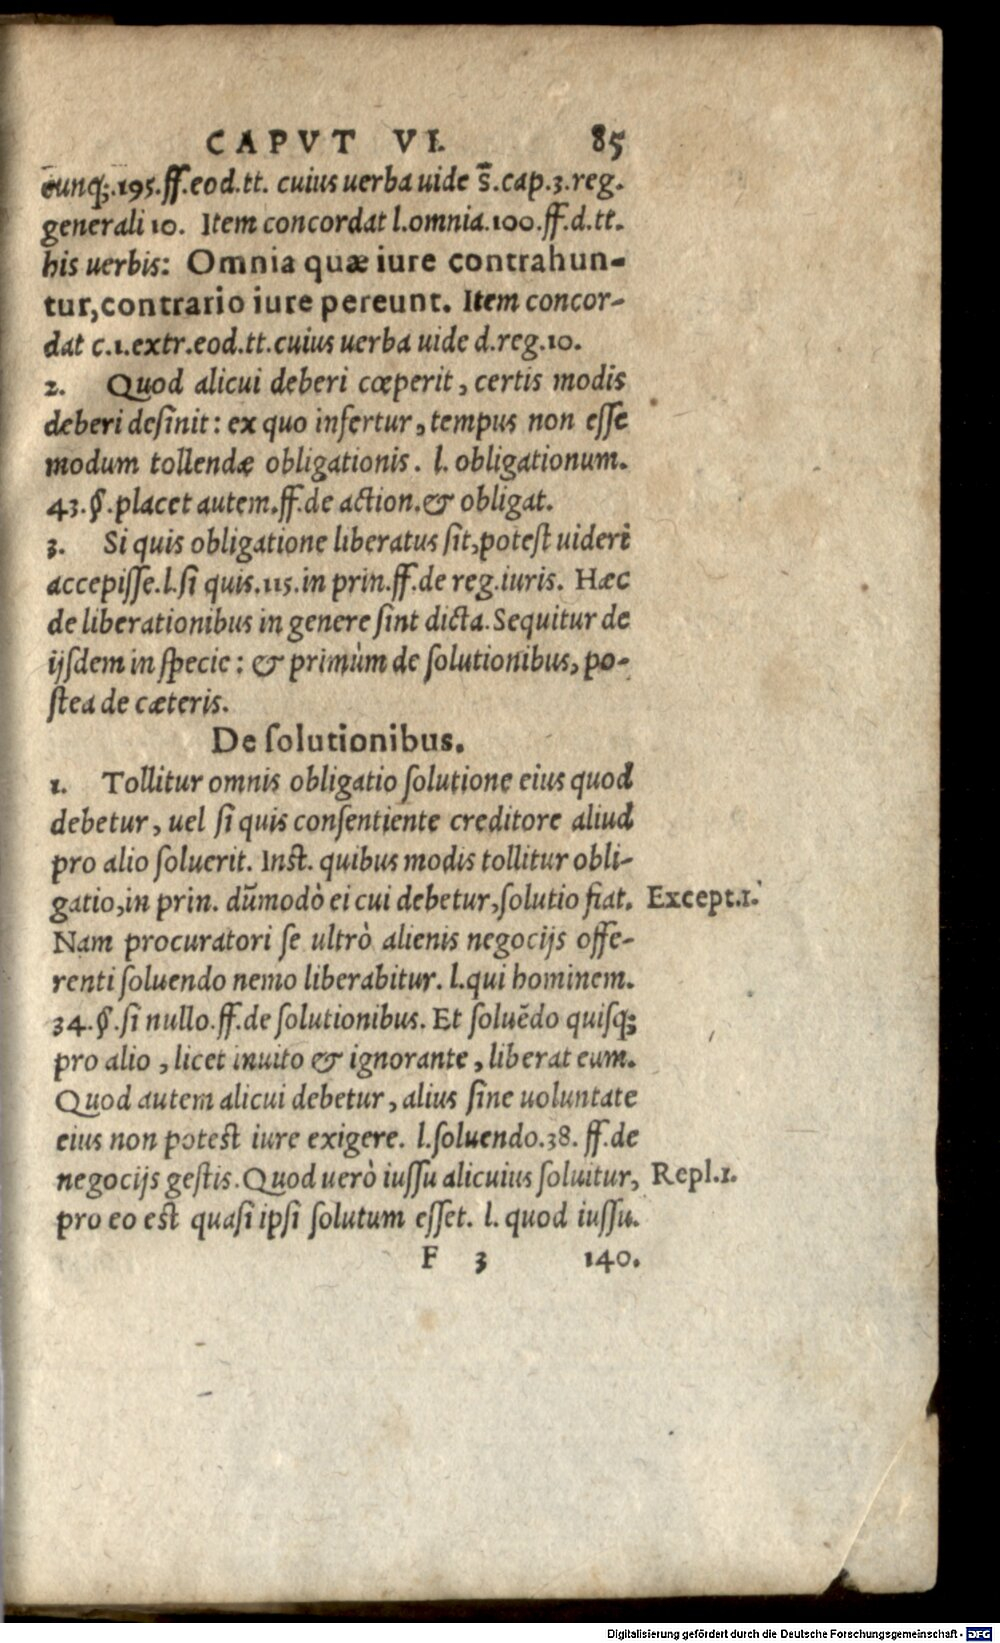 CAPVT VI. 85
cunq;.195.ff.eod.tt. cuius uerba uide s̄.cap.3.reg.
generali 10. Item concordat l.omnia.100.ff.d.tt.
his uerbis: Omnia quæ iure contrahun-
tur,contrario iure pereunt. Item concor-
dat c.1.extr.eod.tt.cuius uerba uide d.reg.10.
2. Quod alicui deberi cœperit, certis modis
deberi deſinit: ex quo infertur, tempus non eſſe
modum tollendæ obligationis. l. obligationum.
43.§.placet autem.ff.de action.& obligat.
3. Si quis obligatione liberatus ſit,poteſt uideri
accepiſſe.l.ſi quis.115.in prin.ff.de reg.iuris. Hæc
de liberationibus in genere ſint dicta. Sequitur de
ijſdem in ſpecie: & primùm de ſolutionibus, po-
ſtea de cæteris.
De ſolutionibus.
1. Tollitur omnis obligatio ſolutione eius quod
debetur, uel ſi quis conſentiente creditore aliud
pro alio ſoluerit. Inſt. quibus modis tollitur obli-
gatio,in prin. dūmodò ei cui debetur,ſolutio fiat. Except.1.
Nam procuratori ſe ultrò alienis negocijs offe-
renti ſoluendo nemo liberabitur. l.qui hominem.
34.§.ſi nullo.ff.de ſolutionibus. Et ſoluēdo quiſq;
pro alio, licet inuito & ignorante, liberat eum.
Quod autem alicui debetur, alius ſine uoluntate
eius non poteſt iure exigere. l.ſoluendo.38. ff.de
negocijs geſtis. Quod uerò iuſſu alicuius ſoluitur, Repl.1.
pro eo eſt quaſi ipſi ſolutum eſſet. l. quod iuſſu.
F 3 140.
Digitalisierung gefördert durch die Deutsche Forschungsgemeinschaft - DFG